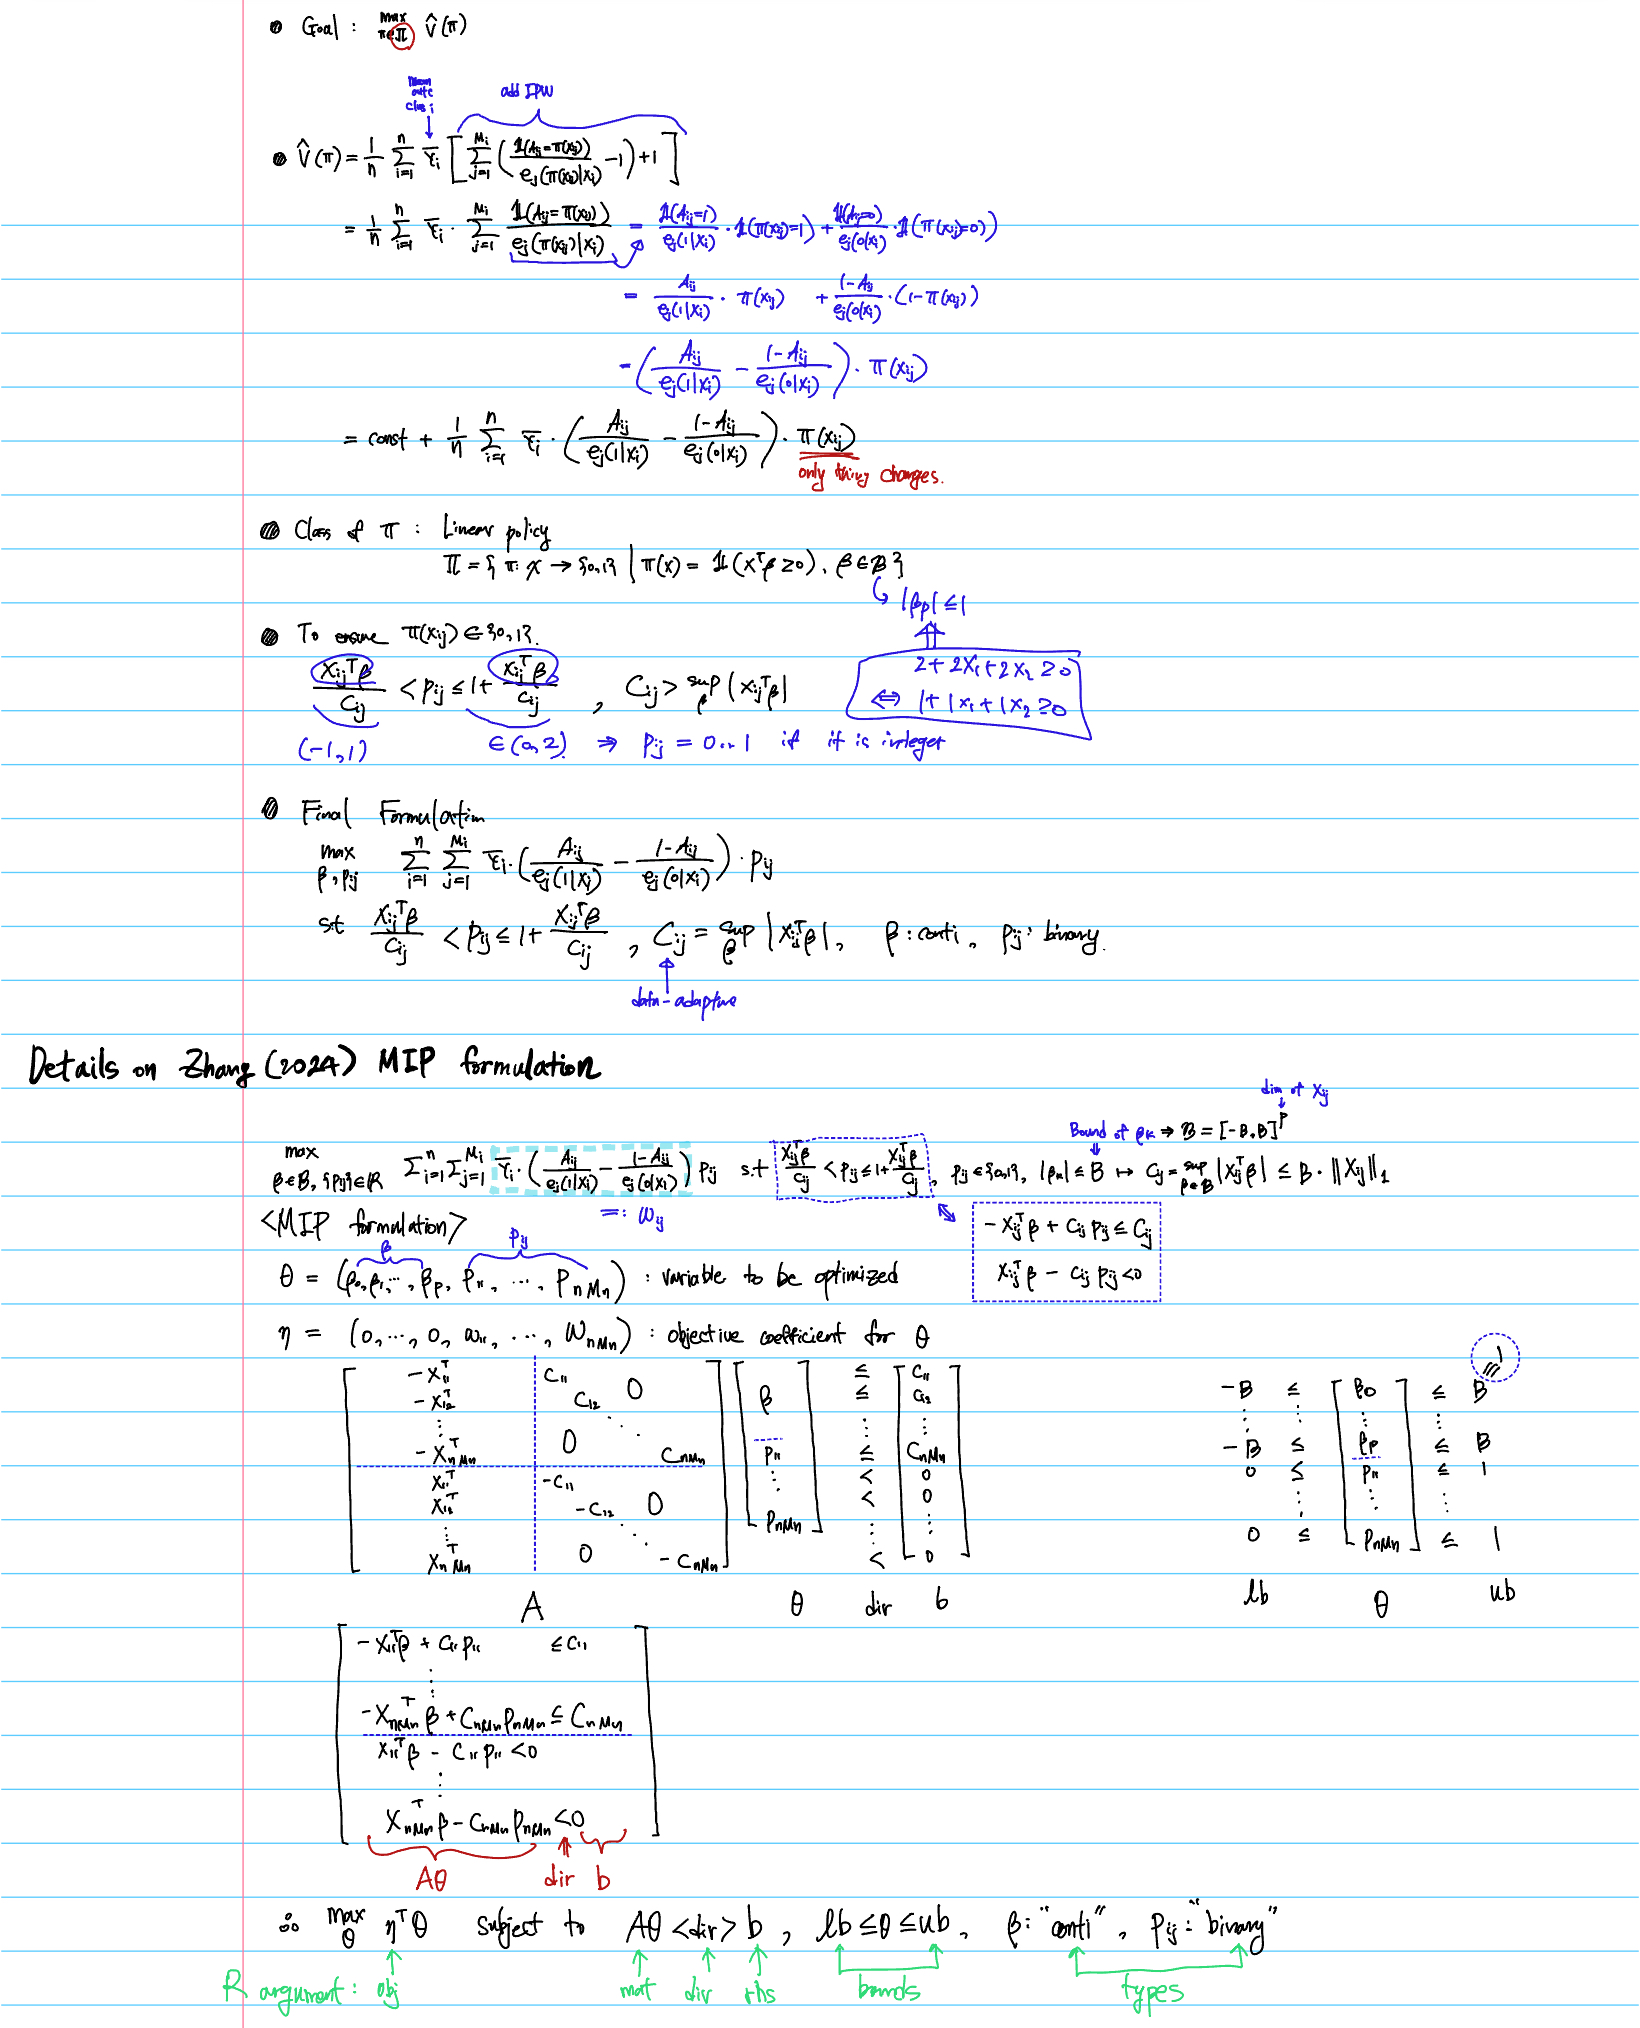 ● Goal : max_{π∈Π} V̂(π)
Mean outc clus i
add IPW
● V̂(π) = 1/n Σ_{i=1}^{n} Ȳ_i [ Σ_{j=1}^{M_i} ( 𝟙(A_ij = π(X_ij)) / e_j(π(X_ij)|X_i) − 1 ) + 1 ]
= 1/n Σ_{i=1}^{n} Ȳ_i · Σ_{j=1}^{M_i} 𝟙(A_ij = π(X_ij)) / e_j(π(X_ij)|X_i) = 𝟙(A_ij=1)/e_j(1|X_i) · 𝟙(π(X_ij)=1) + 𝟙(A_ij=0)/e_j(0|X_i) · 𝟙(π(X_ij)=0)
= A_ij/e_j(1|X_i) · π(X_ij) + (1−A_ij)/e_j(0|X_i) · (1−π(X_ij))
= ( A_ij/e_j(1|X_i) − (1−A_ij)/e_j(0|X_i) ) · π(X_ij)
= const + 1/n Σ_{i=1}^{n} Ȳ_i · ( A_ij/e_j(1|X_i) − (1−A_ij)/e_j(0|X_i) ) · π(X_ij)
only thing changes.
● Class of π : Linear policy
Π = { π: 𝒳 → {0,1} | π(x) = 𝟙(x^T β ≥ 0), β ∈ ℬ }
↳ |β_p| ≤ 1
● To ensure π(X_ij) ∈ {0,1}.
X_ij^T β / C_ij < p_ij ≤ 1 + X_ij^T β / C_ij , C_ij > sup_β |X_ij^T β|
2 + 2X_1 + 2X_2 ≥ 0
⇔ 1 + 1X_1 + 1X_2 ≥ 0
(−1,1) ∈ (0,2) ⇒ p_ij = 0 or 1 if it is integer
● Final Formulation
max_{β, p_ij} Σ_{i=1}^{n} Σ_{j=1}^{M_i} Ȳ_i · ( A_ij/e_j(1|X_i) − (1−A_ij)/e_j(0|X_i) ) · p_ij
s.t X_ij^T β / C_ij < p_ij ≤ 1 + X_ij^T β / C_ij , C_ij = sup_β |X_ij^T β|, β : conti, p_ij : binary.
data-adaptive
Details on Zhang (2024) MIP formulation
dim of X_ij
Bound of β_k ⇒ ℬ = [−B, B]^p
max_{β∈ℬ, {p_ij}∈ℝ} Σ_{i=1}^{n} Σ_{j=1}^{M_i} Ȳ_i · ( A_ij/e_j(1|X_i) − (1−A_ij)/e_j(0|X_i) ) p_ij s.t X_ij^T β / C_ij < p_ij ≤ 1 + X_ij^T β / C_ij , p_ij ∈ {0,1}, |β_k| ≤ B ↦ C_ij = sup_{β∈ℬ} |X_ij^T β| ≤ B · ‖X_ij‖_1
=: ω_ij
<MIP formulation>
−X_ij^T β + C_ij p_ij ≤ C_ij
X_ij^T β − C_ij p_ij < 0
β p_ij
θ = (β_0, β_1, ⋯, β_p, p_11, ⋯, p_{nM_n}) : variable to be optimized
η = (0, ⋯, 0, ω_11, ⋯, ω_{nM_n}) : objective coefficient for θ
1
−X_11^T C_11 0 ≤ C_11
−X_12^T C_12 β ≤ C_12 −B ≤ β_0 ≤ B
⋮ ⋱ ⋮ ⋮ ⋮ ⋮ ⋮
−X_{nM_n}^T 0 C_{nM_n} p_11 ≤ C_{nM_n} −B ≤ β_p ≤ B
X_11^T −C_11 ⋮ < 0 0 ≤ p_11 ≤ 1
X_12^T −C_12 0 < 0 ⋮ ⋮ ⋮
⋮ ⋱ p_{nM_n} ⋮ ⋮ 0 ≤ p_{nM_n} ≤ 1
X_{nM_n}^T 0 −C_{nM_n} < 0
A θ dir b lb θ ub
−X_11^T β + C_11 p_11 ≤ C_11
⋮
−X_{nM_n}^T β + C_{nM_n} p_{nM_n} ≤ C_{nM_n}
X_11^T β − C_11 p_11 < 0
⋮
X_{nM_n}^T β − C_{nM_n} p_{nM_n} < 0
Aθ dir b
∴ max_θ η^T θ subject to Aθ <dir> b , lb ≤ θ ≤ ub, β : "conti" , p_ij : "binary"
R argument : obj mat dir rhs bounds types